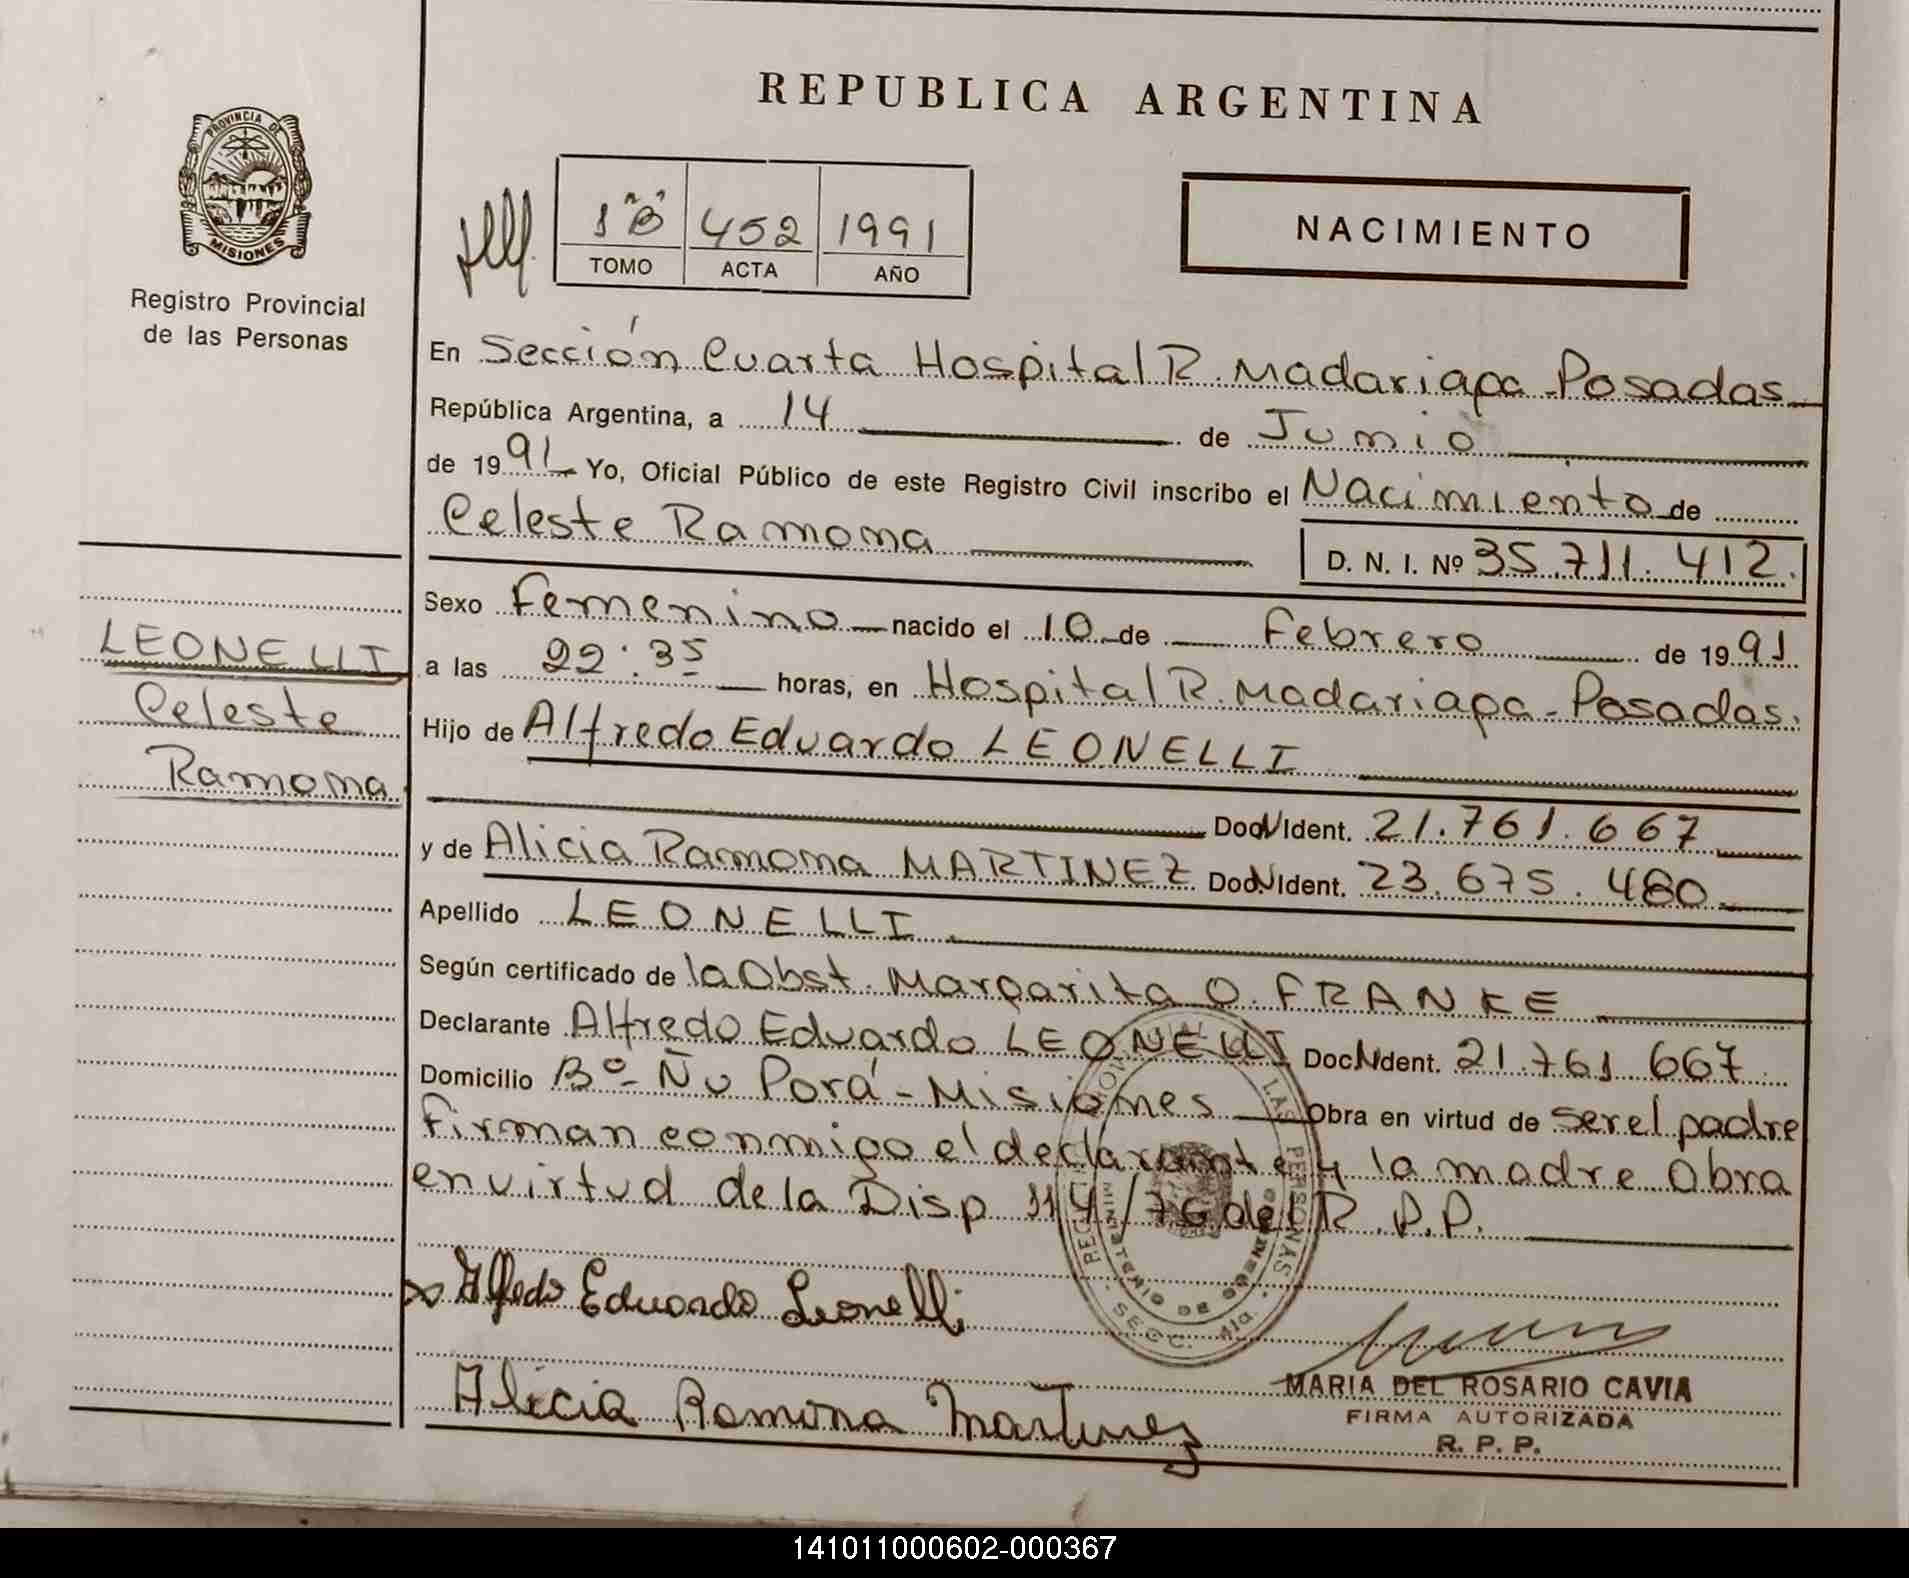 REPUBLICA ARGENTINA
PROVINCIA DE MISIONES
Registro Provincial
de las Personas
1 "B" 452 1991
TOMO ACTA AÑO
NACIMIENTO
En Sección Cuarta Hospital R. Madariaga - Posadas
República Argentina, a 14 de Junio
de 1991 Yo, Oficial Público de este Registro Civil inscribo el Nacimiento de
Celeste Ramona D. N. I. Nº 35.711.412.
Sexo Femenino nacido el 10 de Febrero de 1991
a las 22:35 horas, en Hospital R. Madariaga - Posadas.
Hijo de Alfredo Eduardo LEONELLI
Doc. N Ident. 21.761.667
y de Alicia Ramona MARTINEZ Doc. N Ident. 23.675.480
Apellido LEONELLI
Según certificado de la Obst. Margarita O. FRANKE
Declarante Alfredo Eduardo LEONELLI Doc. N Ident. 21.761.667
Domicilio Bº - Ñu Porá - Misiones Obra en virtud de ser el padre
firman conmigo el declarante y la madre Obra
en virtud de la Disp 114/76 del R.P.P.
LEONELLI
Celeste
Ramona
Alfredo Eduardo Leonelli
Alicia Ramona Martinez
LAS PERSONAS
SECC. 4ta.
MINISTERIO DE GOBIERNO
MARIA DEL ROSARIO CAVIA
FIRMA AUTORIZADA
R. P. P.
141011000602-000367